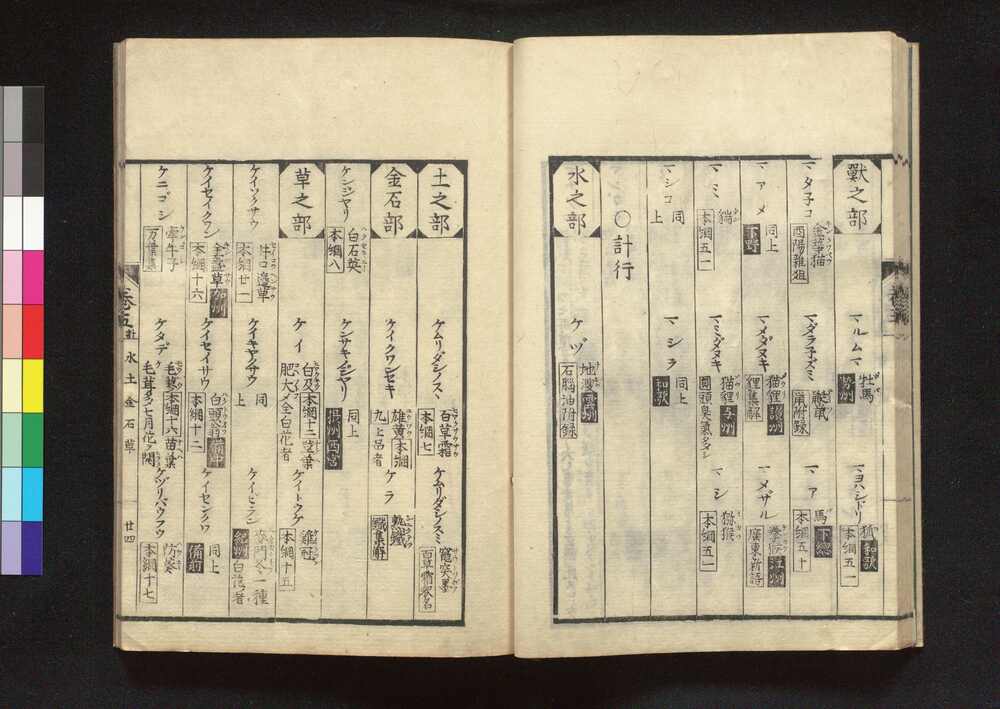 獸之部
マルムマ 牡馬 勢州
マヨハシドリ 狐 和歌 本綱五一
マタ子コ 金華猫 酉陽雑俎
マダラ子ズミ 鼠 附録
マア 馬 下總 本綱五十
マアメ 同上 下野
マメダヌキ 猫貍 集解
マメザル 江州 廣東新語
マミ 猯 本綱五一
マミダヌキ 猫貍 与州 圓頭臭氣多シ
マシ 獼猴 本綱五一
マシコ 同上
マシラ 同上 和歌
〇計行
水之部
ケヅ 地溲 雲州 石脳油附録
土之部
ケムリダシノスミ 百草霜 本綱七
ケムリダシノスミ 竈突墨 百草霜釋名
金石部
ケイクワンセキ 雄黄 本綱九 上品者
ケラ 熟鐵 鐵集解
ケンジヤリ 白石英 本綱八
ケンサキノジヤリ 同上 摂州西宮
草之部
ケイ 白及 本綱十二 莖葉肥大メ全白花者
ケイトウケ 雞冠 本綱十五
ケイソクサウ 牛口邊草 本綱廿一
ケイキヤクサウ 同上
ケイビラン 紀州 麥門冬一種白花者
ケイセイクワン 金莖草 本綱十六
ケイセイサウ 白頭翁 備中 本綱十二
ケイセンクワ 同上 備前
ケニゴシ 牽牛子 万葉集
ケタデ 毛蓼 本綱十六 苗葉毛茸多シ七月花ヲ開
ケヅリバウフウ 防葵 本綱十七
巻五 獸 水 土 金 石 草 廿四